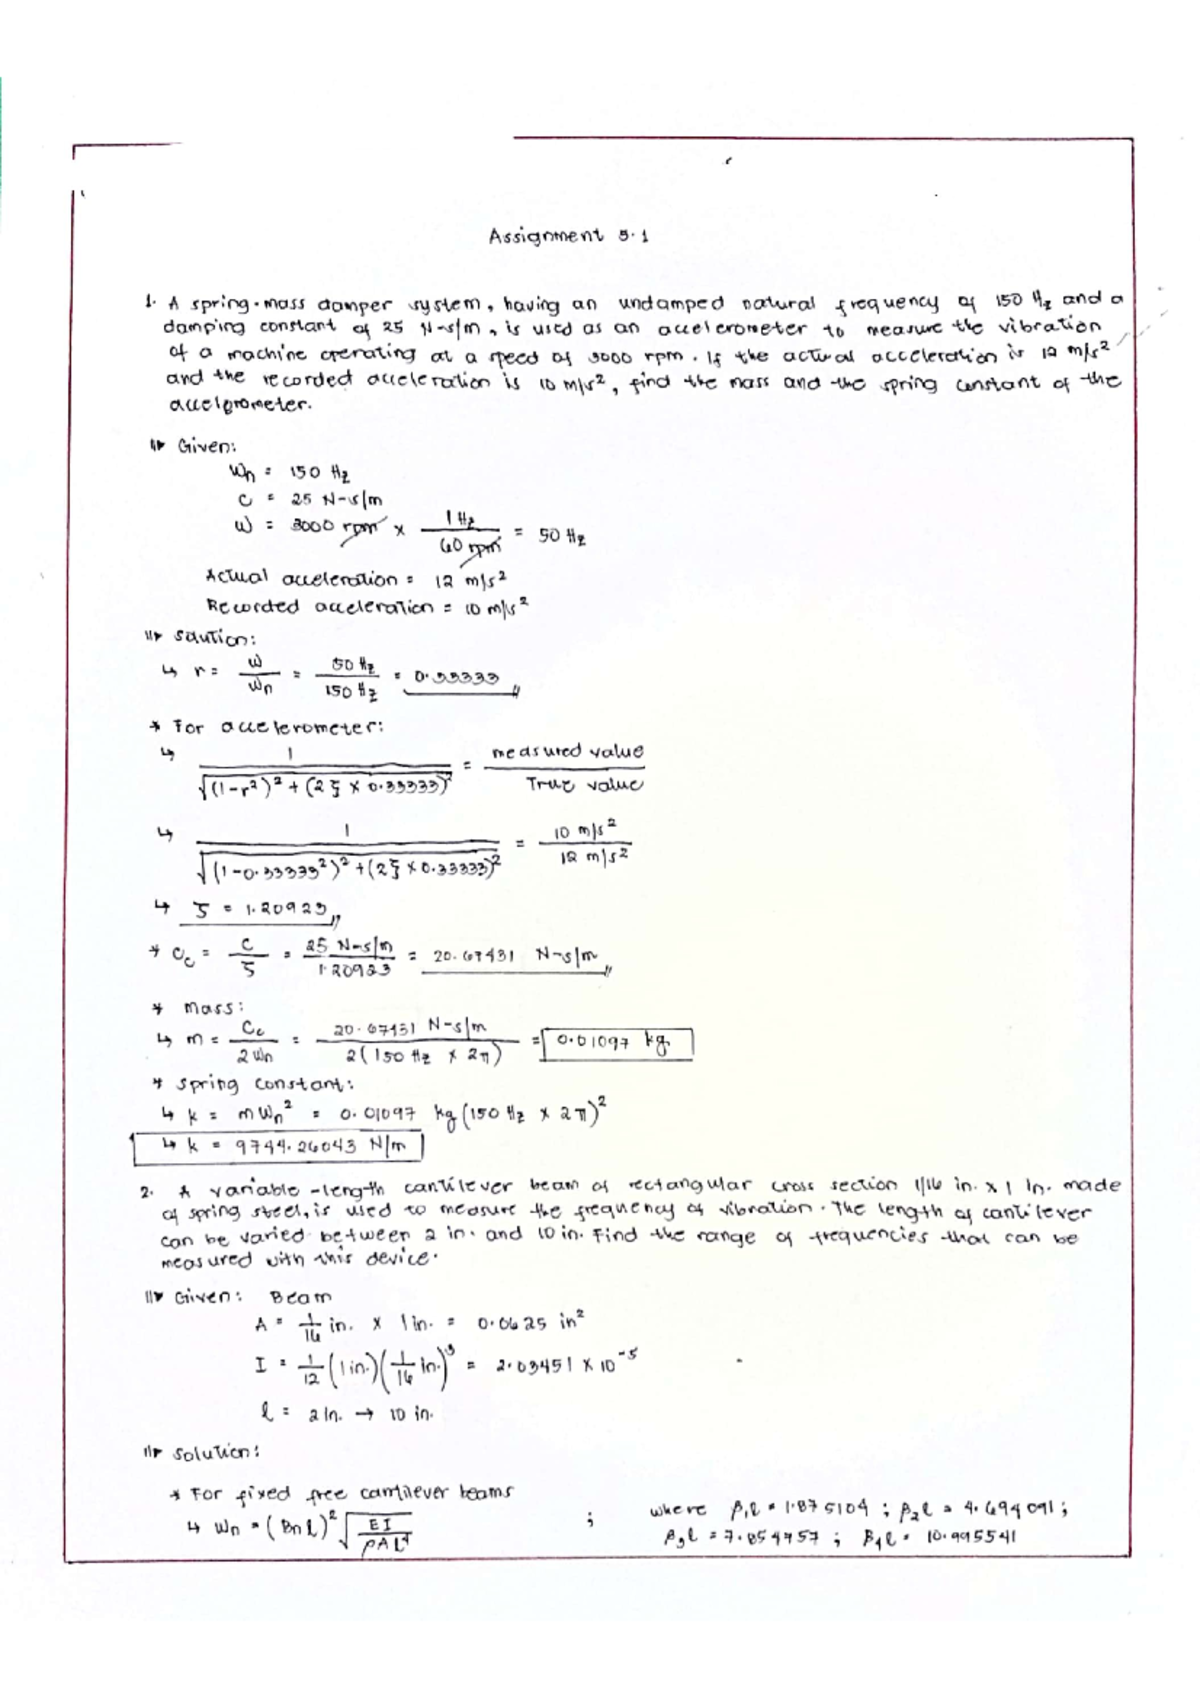 Assignment 5.1
1. A spring-mass damper system, having an undamped natural frequency of 150 Hz and a
damping constant of 25 N-s/m, is used as an accelerometer to measure the vibration
of a machine operating at a speed of 3000 rpm. If the actual acceleration is 12 m/s²
and the recorded acceleration is 10 m/s², find the mass and the spring constant of the
accelerometer.
Given:
Wn = 150 Hz
C = 25 N-s/m
W = 3000 rpm × 1 Hz / 60 rpm = 50 Hz
Actual acceleration = 12 m/s²
Recorded acceleration = 10 m/s²
Solution:
↳ r = W / Wn = 50 Hz / 150 Hz = 0.33333
* For accelerometer:
↳ 1 / √((1-r²)² + (2ξ × 0.33333)²) = measured value / True value
↳ 1 / √((1-0.33333²)² + (2ξ × 0.33333)²) = 10 m/s² / 12 m/s²
↳ ξ = 1.20923
* Cc = C / ξ = 25 N-s/m / 1.20923 = 20.67431 N-s/m
* Mass:
↳ m = Cc / 2Wn = 20.67431 N-s/m / 2(150 Hz × 2π) = 0.01097 kg
* Spring constant:
↳ k = mWn² = 0.01097 kg (150 Hz × 2π)²
↳ k = 9744.26043 N/m
2. A variable-length cantilever beam of rectangular cross section 1/16 in. x 1 in. made
of spring steel, is used to measure the frequency of vibration. The length of cantilever
can be varied between 2 in. and 10 in. Find the range of frequencies that can be
measured with this device.
Given: Beam
A = 1/16 in. × 1 in. = 0.0625 in²
I = 1/12 (1 in.)(1/16 in.)³ = 2.03451 × 10⁻⁵
l = 2 in. → 10 in.
Solution:
* For fixed free cantilever beams
↳ Wn = (Bn l)² √(EI / ρAL⁴) ; where β₁l = 1.875104 ; β₂l = 4.694091 ;
β₃l = 7.854757 ; β₄l = 10.995541